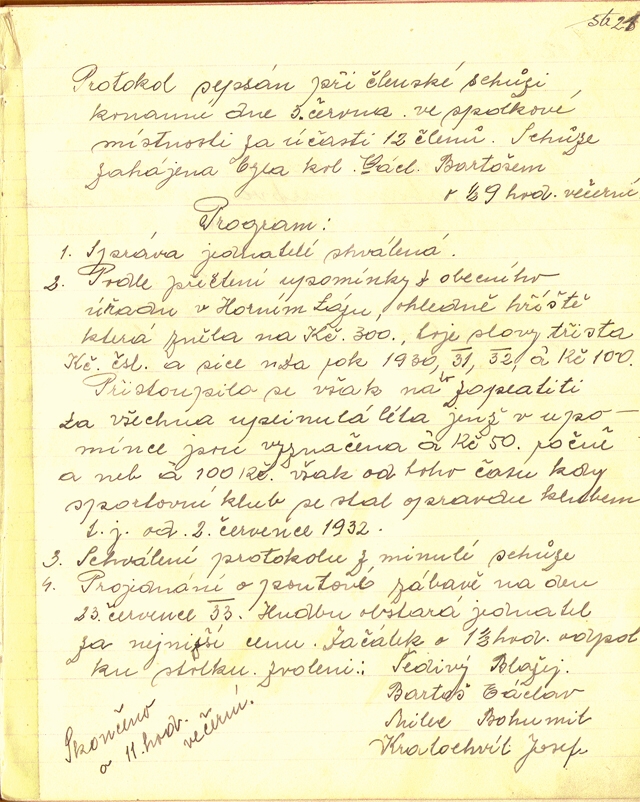 str 21
Protokol sepsán při členské schůzi
konanni dne 3. června. ve spolkové
místnosti za účasti 12 členů. Schůze
zahájena byla kol. Václ. Bartošem
v ½ 9 hod. večerní
Program:
1. Správa jednatelé schválená.
2. Podle přečtení upomínky z obecního
úřadu v Horním Új, ohledně hřiště
která zněla na Kč. 300., toje slovy třista
Kč. čsl. a sice nza rok 1930, 31, 32, à Kč 100.
Přistoupilo se však na to zaplatiti
za všechna uplinulá léta jenž v upo-
mínce jsou vyznačena à Kč 50. ročně
a neb à 100 Kč. však od toho času kdy
sportovní klub se stal opravdu klubem
t. j. od. 2. července 1932.
3. Schválení protokolu z minulé schůze
4. Projednání o pouťové zábavě na den
23. července 33. Hudbu obstará jednatel
za nejnižší cenu. Začátek o 1½ hod. odpol
ku stolku. zvoleni: Šedivý Blažej.
Bartoš Václav
Milec Bohumil
Kratochvíl Josef
Skončeno
o 11. hod. večerní.